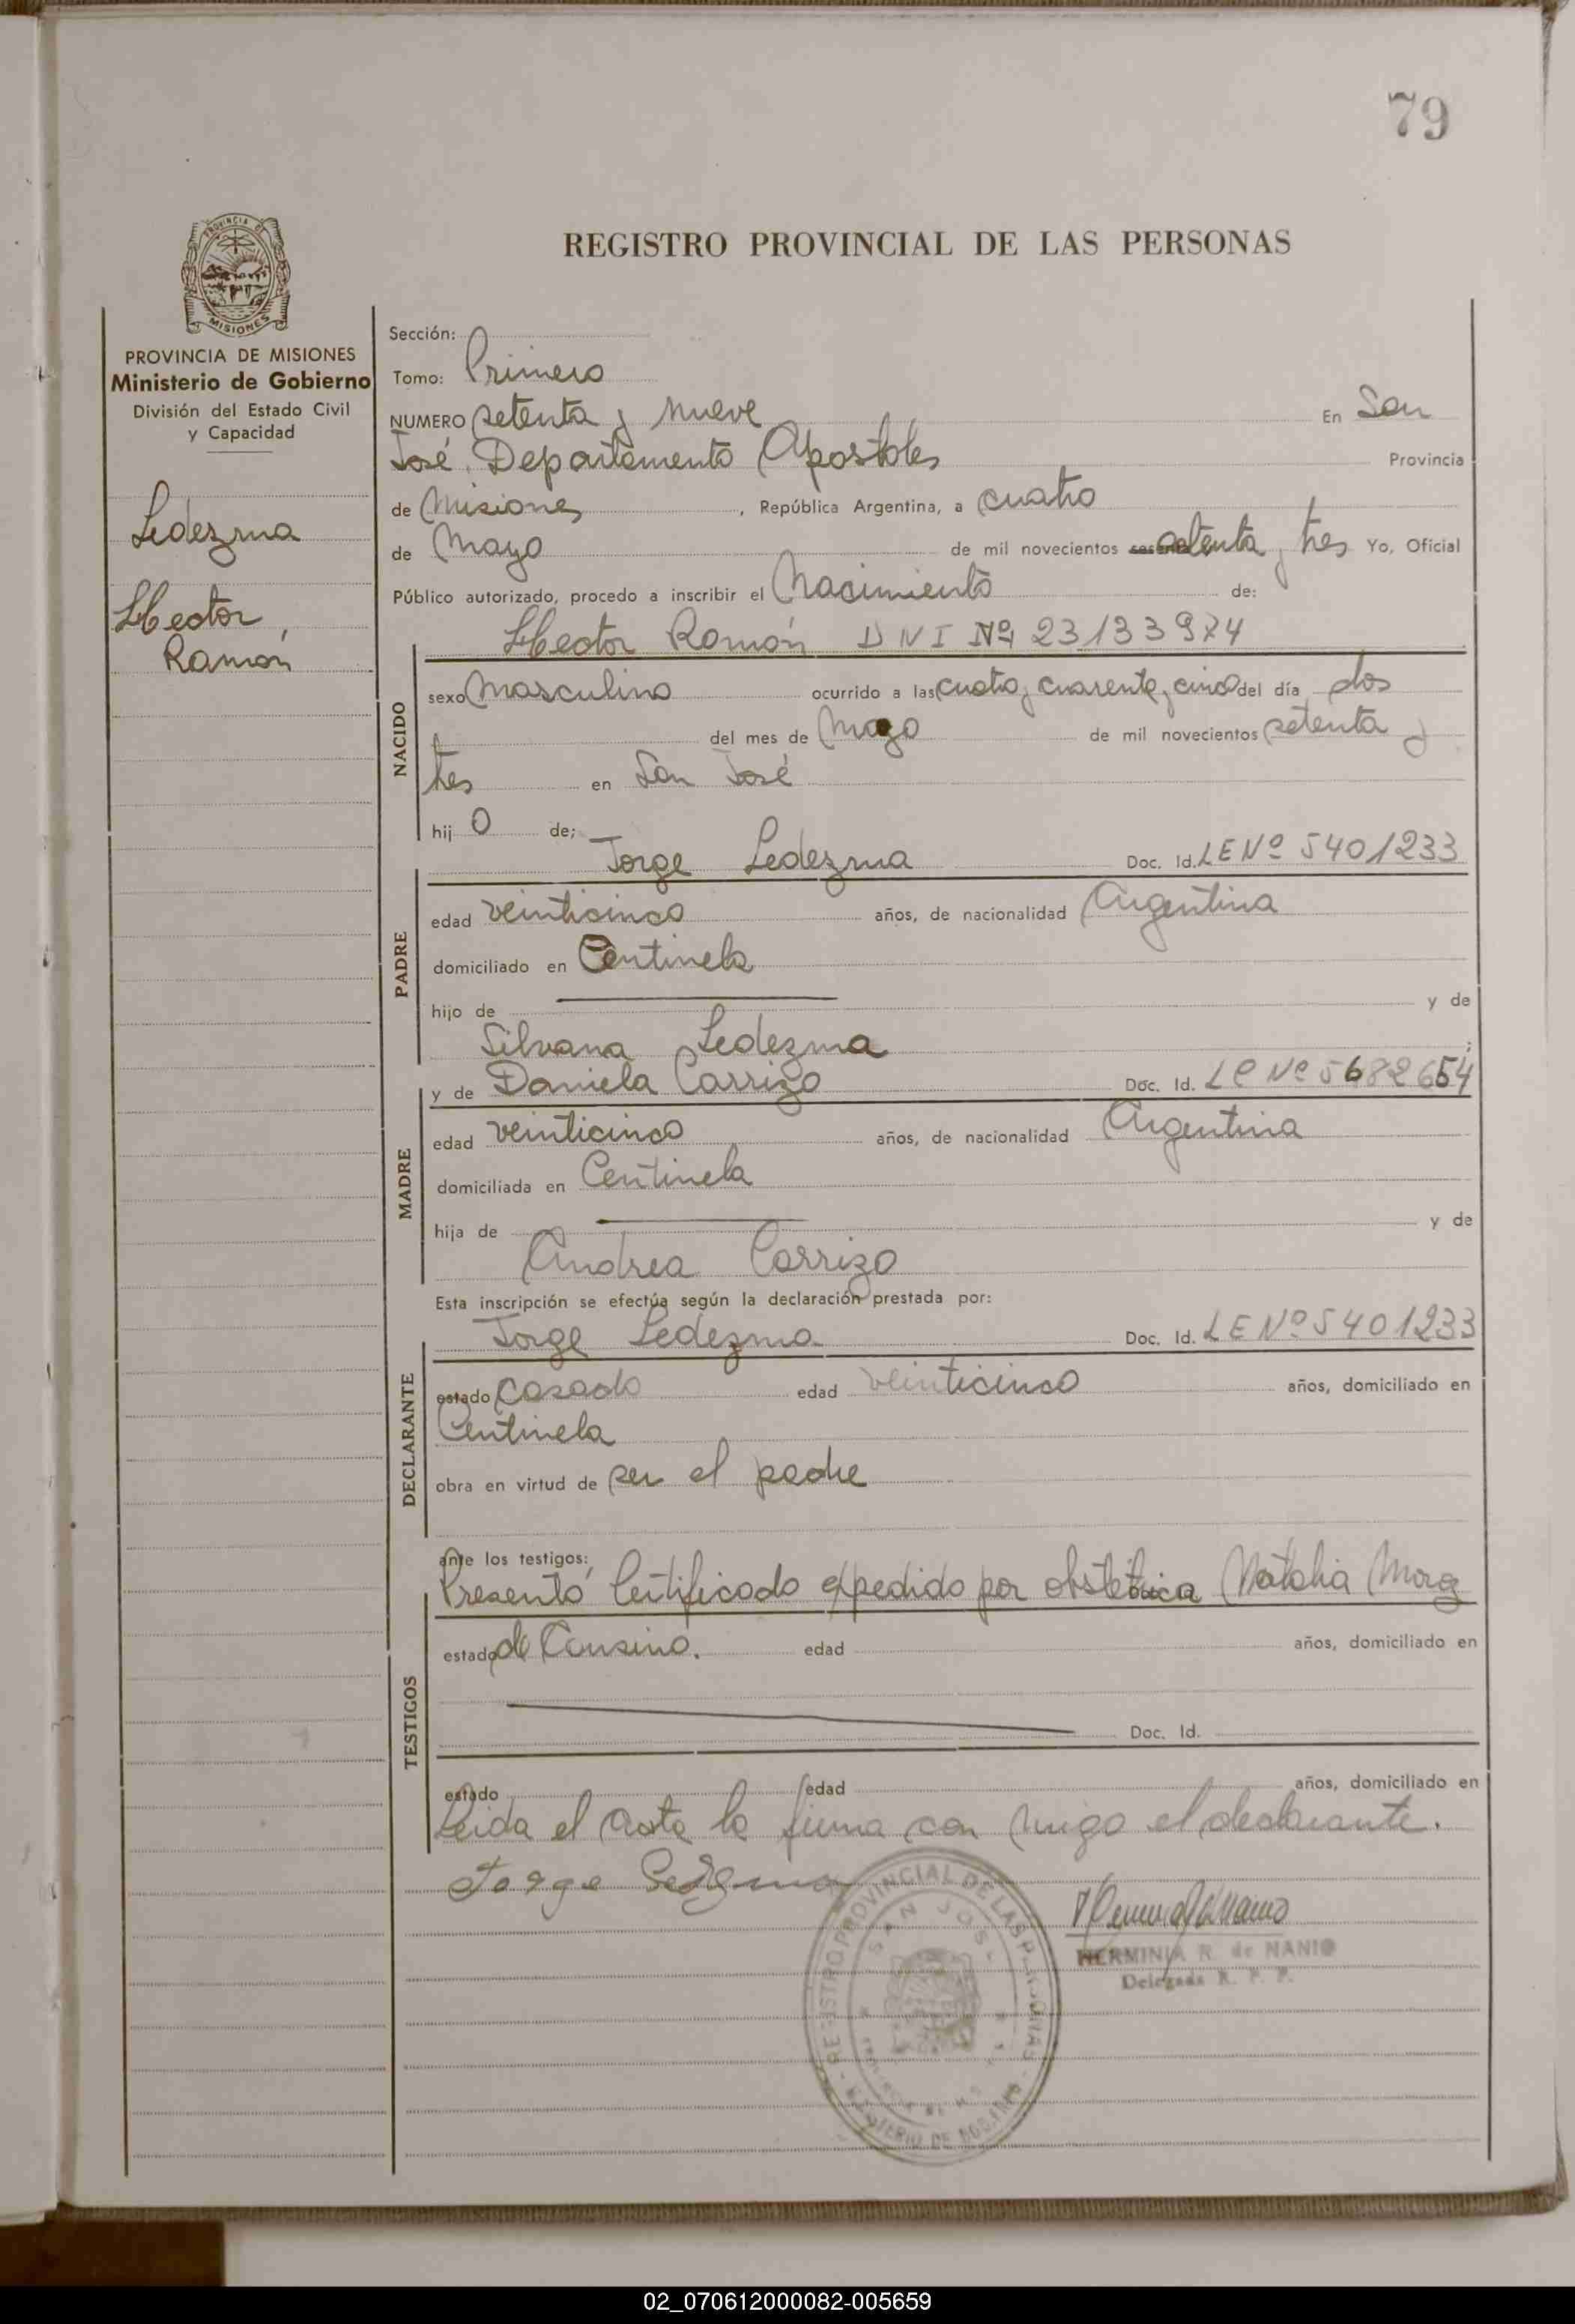 79
PROVINCIA DE
MISIONES
REGISTRO PROVINCIAL DE LAS PERSONAS
PROVINCIA DE MISIONES
Ministerio de Gobierno
División del Estado Civil
y Capacidad
Ledezma
Hector,
Ramón
Sección:
Tomo: Primero
NUMERO setenta y nueve En San
José, Departamento Apostoles Provincia
de Misiones, República Argentina, a cuatro
de Mayo de mil novecientos setenta y tres Yo, Oficial
Público autorizado, procedo a inscribir el Nacimiento de:
Hector Ramón DNI Nº 23133974
NACIDO
sexo Masculino ocurrido a las cuatro y cuarenta y cinco del día dos
del mes de Mayo de mil novecientos setenta y
tres en San José
hijo de; Jorge Ledezma Doc. Id. LE Nº 5401233
PADRE
edad veinticinco años, de nacionalidad Argentina
domiciliado en Centinela
hijo de y de
Silvana Ledezma ;
y de Daniela Carrizo Doc. Id. LC Nº 5682654
MADRE
edad veinticinco años, de nacionalidad Argentina
domiciliada en Centinela
hija de y de
Andrea Carrizo
Esta inscripción se efectúa según la declaración prestada por:
Jorge Ledezma Doc. Id. LE Nº 5401233
DECLARANTE
estado Casado edad veinticinco años, domiciliado en
Centinela
obra en virtud de ser el padre
ante los testigos:
Presentó Certificado expedido por obstétrica Natalia
TESTIGOS
estado de edad años, domiciliado en
Doc. Id.
estado edad años, domiciliado en
Leida el Acta la firma con migo el declarante.
Jorge Ledezma
REGISTRO PROVINCIAL DE LAS PERSONAS
SAN JOSE
MINISTERIO DE GOBIERNO
HERMINIA R. de NANIO
Delegada R. P. P.
02_070612000082-005659